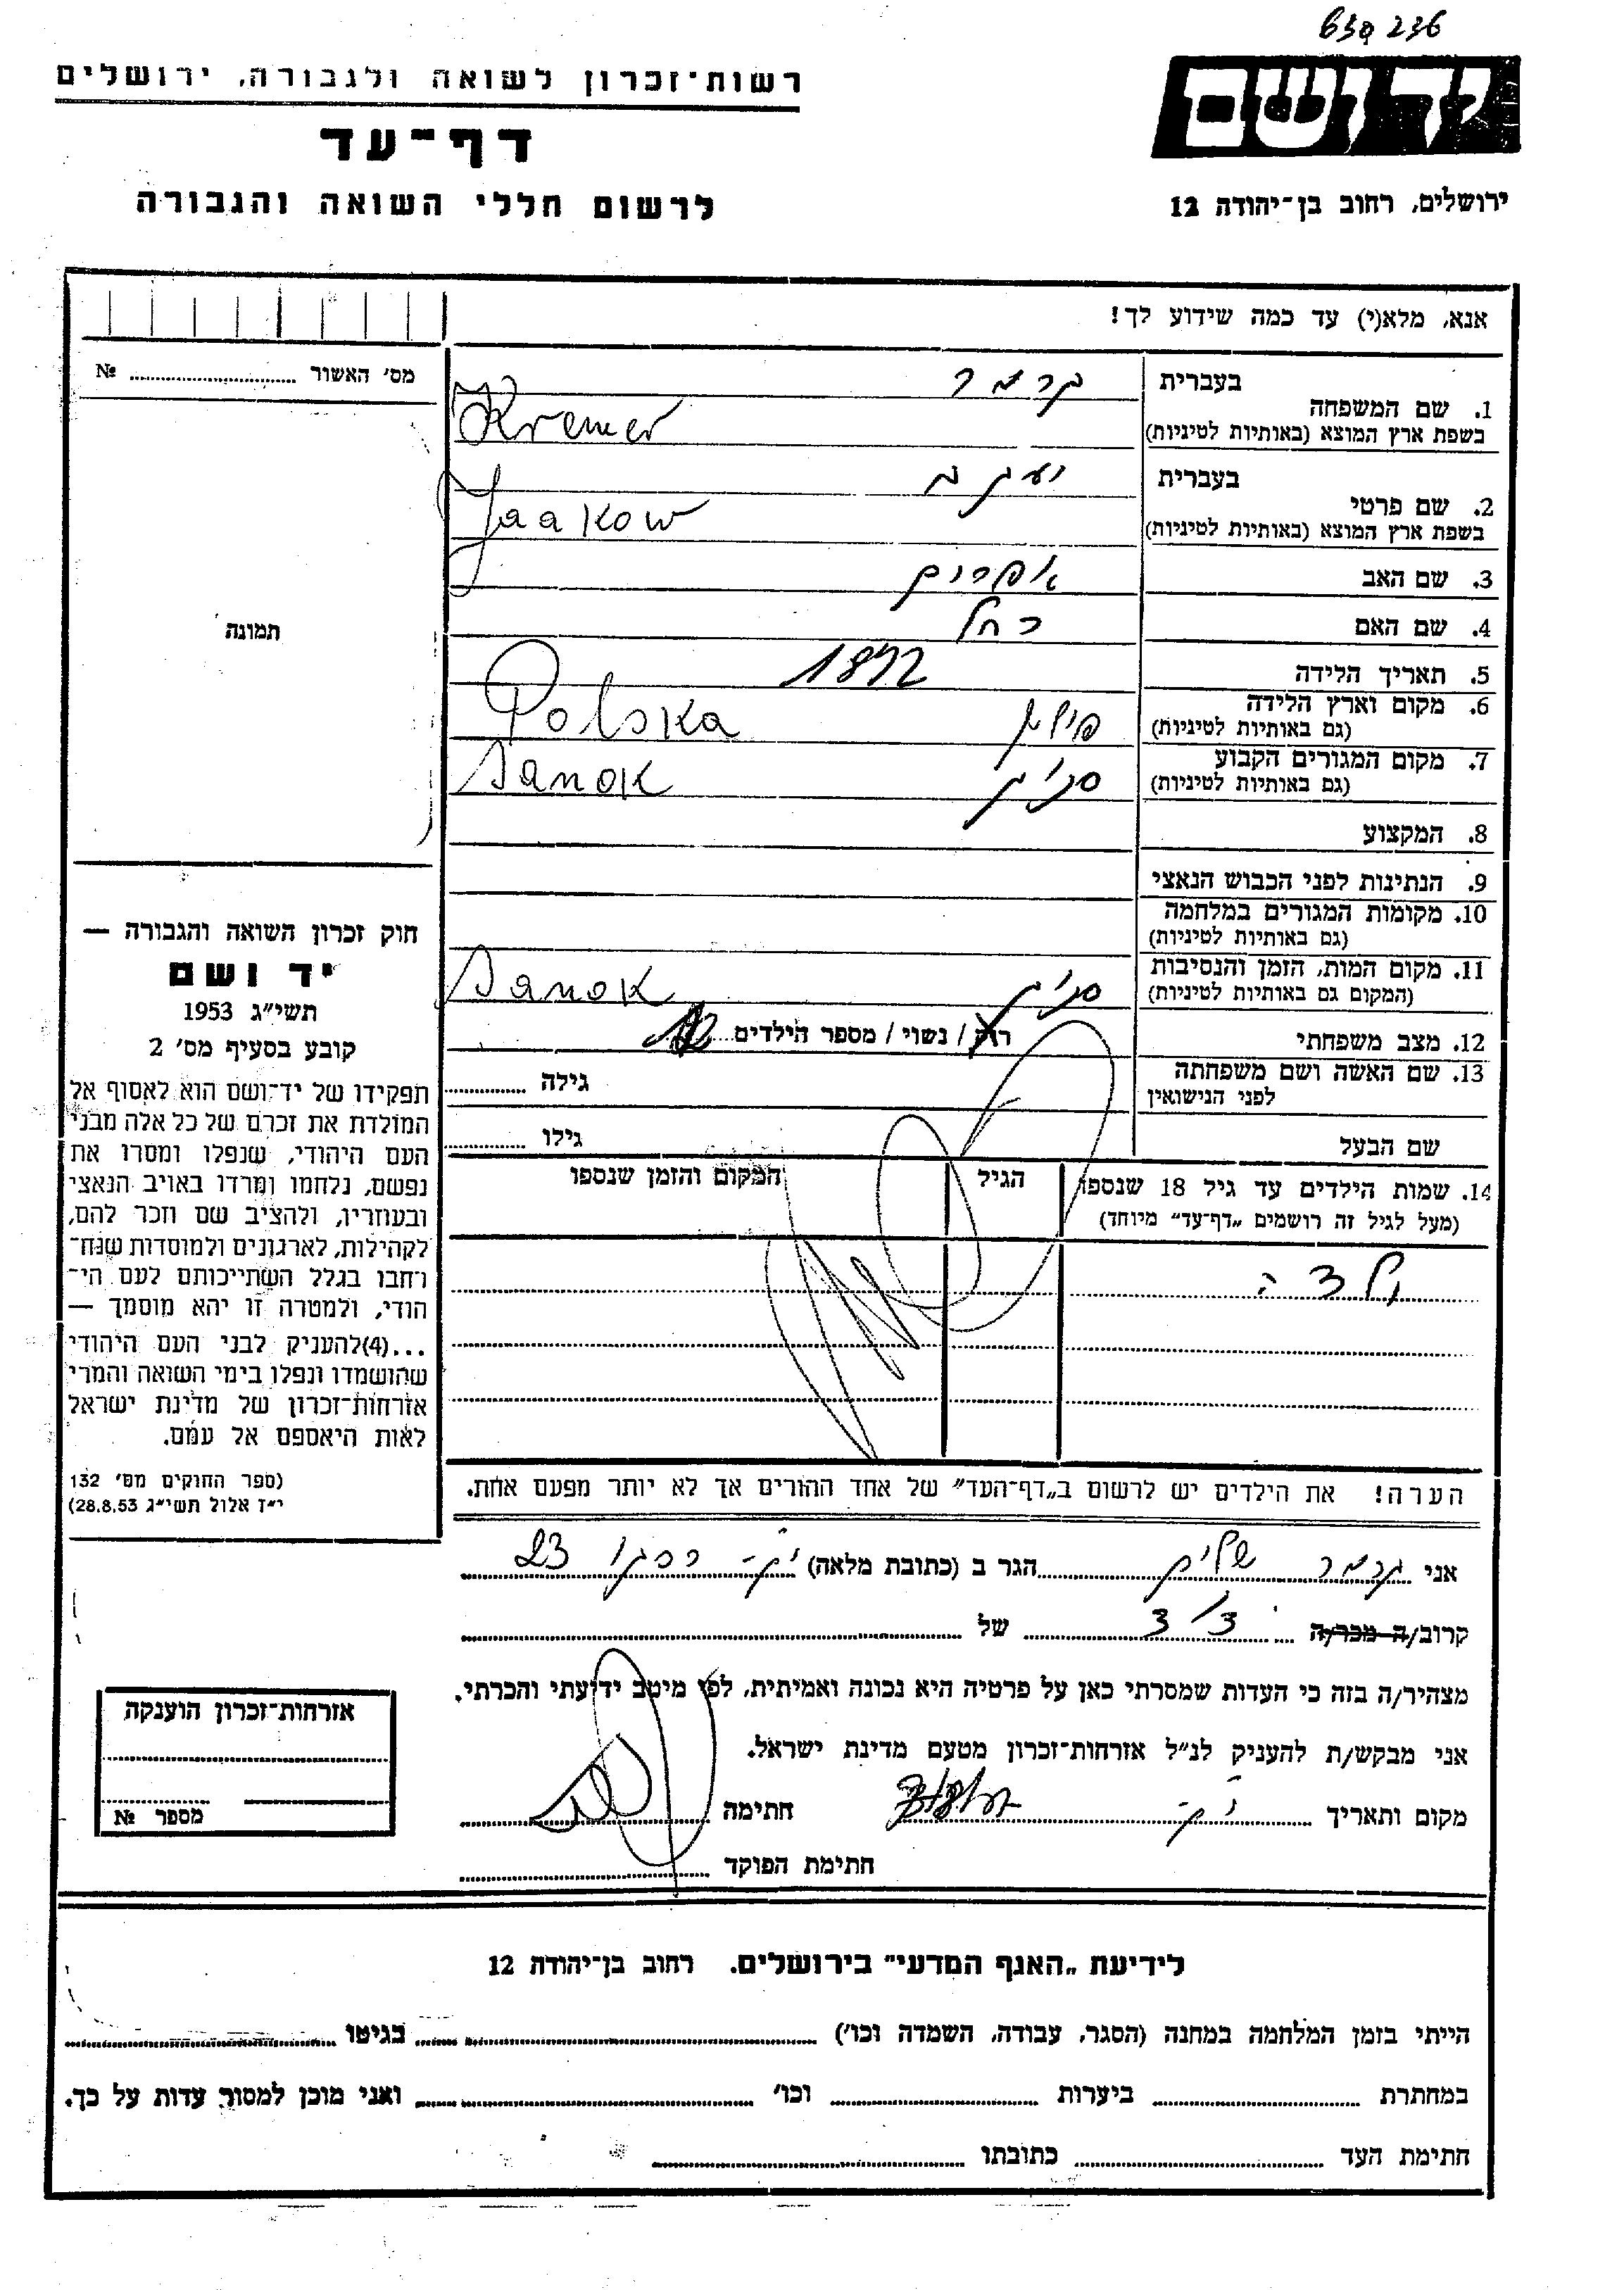 236 639
רשות־זכרון לשואה ולגבורה, ירושלים
יד ושם
דף־עד
לרשום חללי השואה והגבורה
ירושלים, רחוב בן־יהודה 12
אנא, מלא(י) עד כמה שידוע לך!
מס׳ האשור № 
1. שם המשפחה
בעברית קרמר
בשפת ארץ המוצא (באותיות לטיניות) Kremer
2. שם פרטי
בעברית יעקב
בשפת ארץ המוצא (באותיות לטיניות) Jaakow
3. שם האב אפרים
4. שם האם רחל
5. תאריך הלידה 1872
6. מקום וארץ הלידה
(גם באותיות לטיניות) פולין Polska
7. מקום המגורים הקבוע
(גם באותיות לטיניות) סנוק Sanok
8. המקצוע
9. הנתינות לפני הכבוש הנאצי
10. מקומות המגורים במלחמה
(גם באותיות לטיניות)
11. מקום המות, הזמן והנסיבות
(המקום גם באותיות לטיניות) סנוק Sanok
12. מצב משפחתי רוק / נשוי / מספר הילדים
13. שם האשה ושם משפחתה
לפני הנישואין גילה
שם הבעל גילו
14. שמות הילדים עד גיל 18 שנספו הגיל המקום והזמן שנספו
(מעל לגיל זה רושמים „דף־עד” מיוחד)
הערה! את הילדים יש לרשום ב„דף־העד” של אחד ההורים אך לא יותר מפעם אחת.
תמונה
חוק זכרון השואה והגבורה —
יד ושם
תשי״ג 1953
קובע בסעיף מס׳ 2
תפקידו של יד־ושם הוא לאסוף אל
המולדת את זכרם של כל אלה מבני
העם היהודי, שנפלו ומסרו את
נפשם, נלחמו ומרדו באויב הנאצי
ובעוזריו, ולהציב שם וזכר להם,
לקהילות, לארגונים ולמוסדות שנח־
רחבו בגלל השתייכותם לעם הי־
הודי, ולמטרה זו יהא מוסמך —
...(4)להעניק לבני העם היהודי
שהושמדו ונפלו בימי השואה והמרי
אזרחות־זכרון של מדינת ישראל
לאות היאספם אל עמם.
(ספר החוקים מס׳ 132
י״ז אלול תשי״ג 28.8.53)
אני קרמר שלום הגר ב (כתובת מלאה) 23
קרוב/ה מכר/ה של
מצהיר/ה בזה כי העדות שמסרתי כאן על פרטיה היא נכונה ואמיתית, לפי מיטב ידיעתי והכרתי.
אני מבקש/ת להעניק לנ״ל אזרחות־זכרון מטעם מדינת ישראל.
מקום ותאריך חתימה
חתימת הפוקד
אזרחות־זכרון הוענקה
מספר №
לידיעת „האגף המדעי” בירושלים. רחוב בן־יהודה 12
הייתי בזמן המלחמה במחנה (הסגר, עבודה, השמדה וכו׳) בגיטו
במחתרת ביערות וכו׳ ואני מוכן למסור עדות על כך.
חתימת העד כתובתו